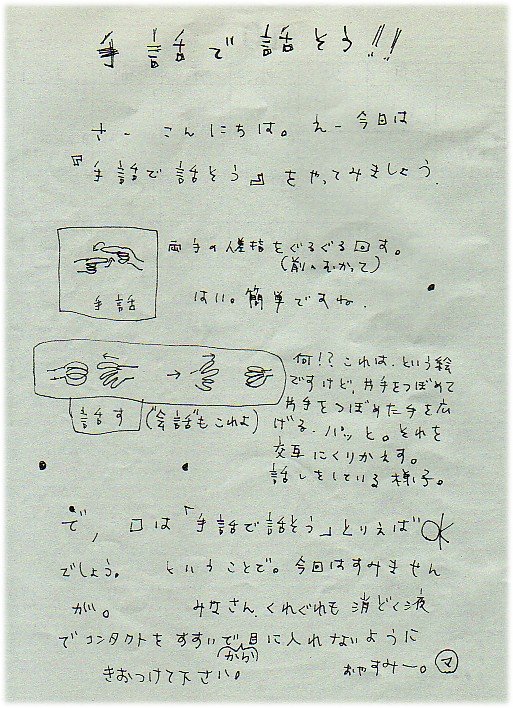 手話で話そう!!
さー こんにちは。えー今日は
『手話で話そう』をやってみましょう.
両手の人差指をぐるぐる回す。
(前へむかって)
手話
はい。簡単ですね.
何!?これは.という絵
ですけど,片手をつぼめて
片手をつぼめた手を広
げる.パッと。それを
交互にくりかえす。
話しをしている様子。
→
話す
("会話"もこれよ)
で,口は「手話で話そう」とりえば"OK
でしょう。 ということで。今回はすみません
が。 みなさん.くれぐれも消どく液
でコンタクトをすすいで,目に入れないように
(から)
きおつけて下さい。
おやすみー。マ